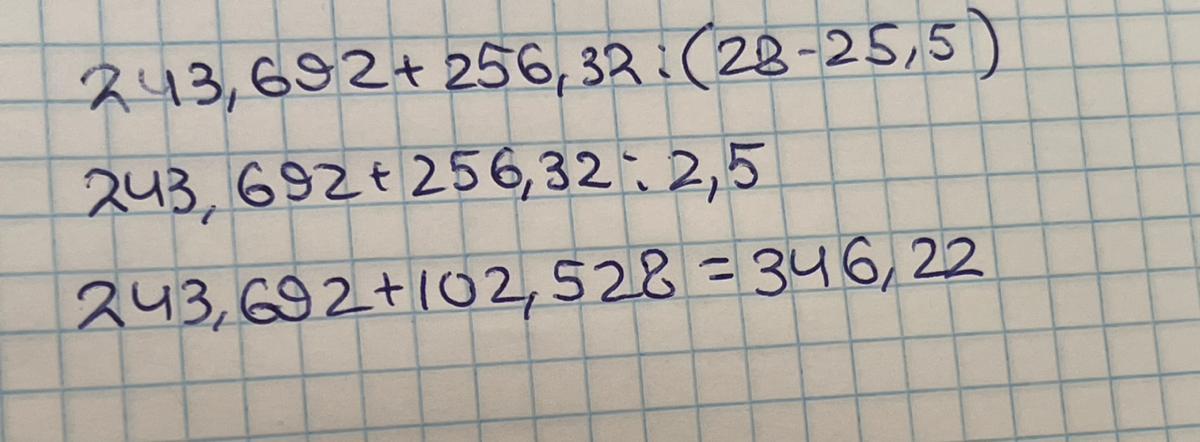 243,692+256,32:(28-25,5)
243,692+256,32:2,5
243,692+102,528=346,22